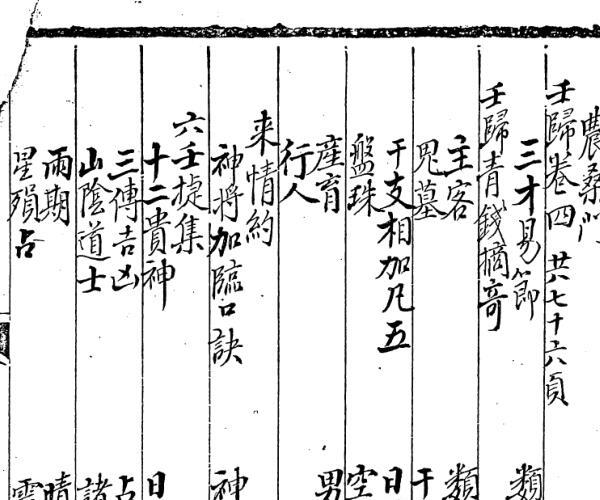 農桑門
壬歸卷四 共七十六頁
三才易節 類
壬歸青錢摘奇
主客 類
鬼墓 干
干支相加凡五 日
盤珠 空
產育 男
行人
来情約
神将加臨口訣 神
六壬捷集
十二貴神 日
三傳吉凶 占
山陰道士 諸
雨期 晴
星殞占 雲